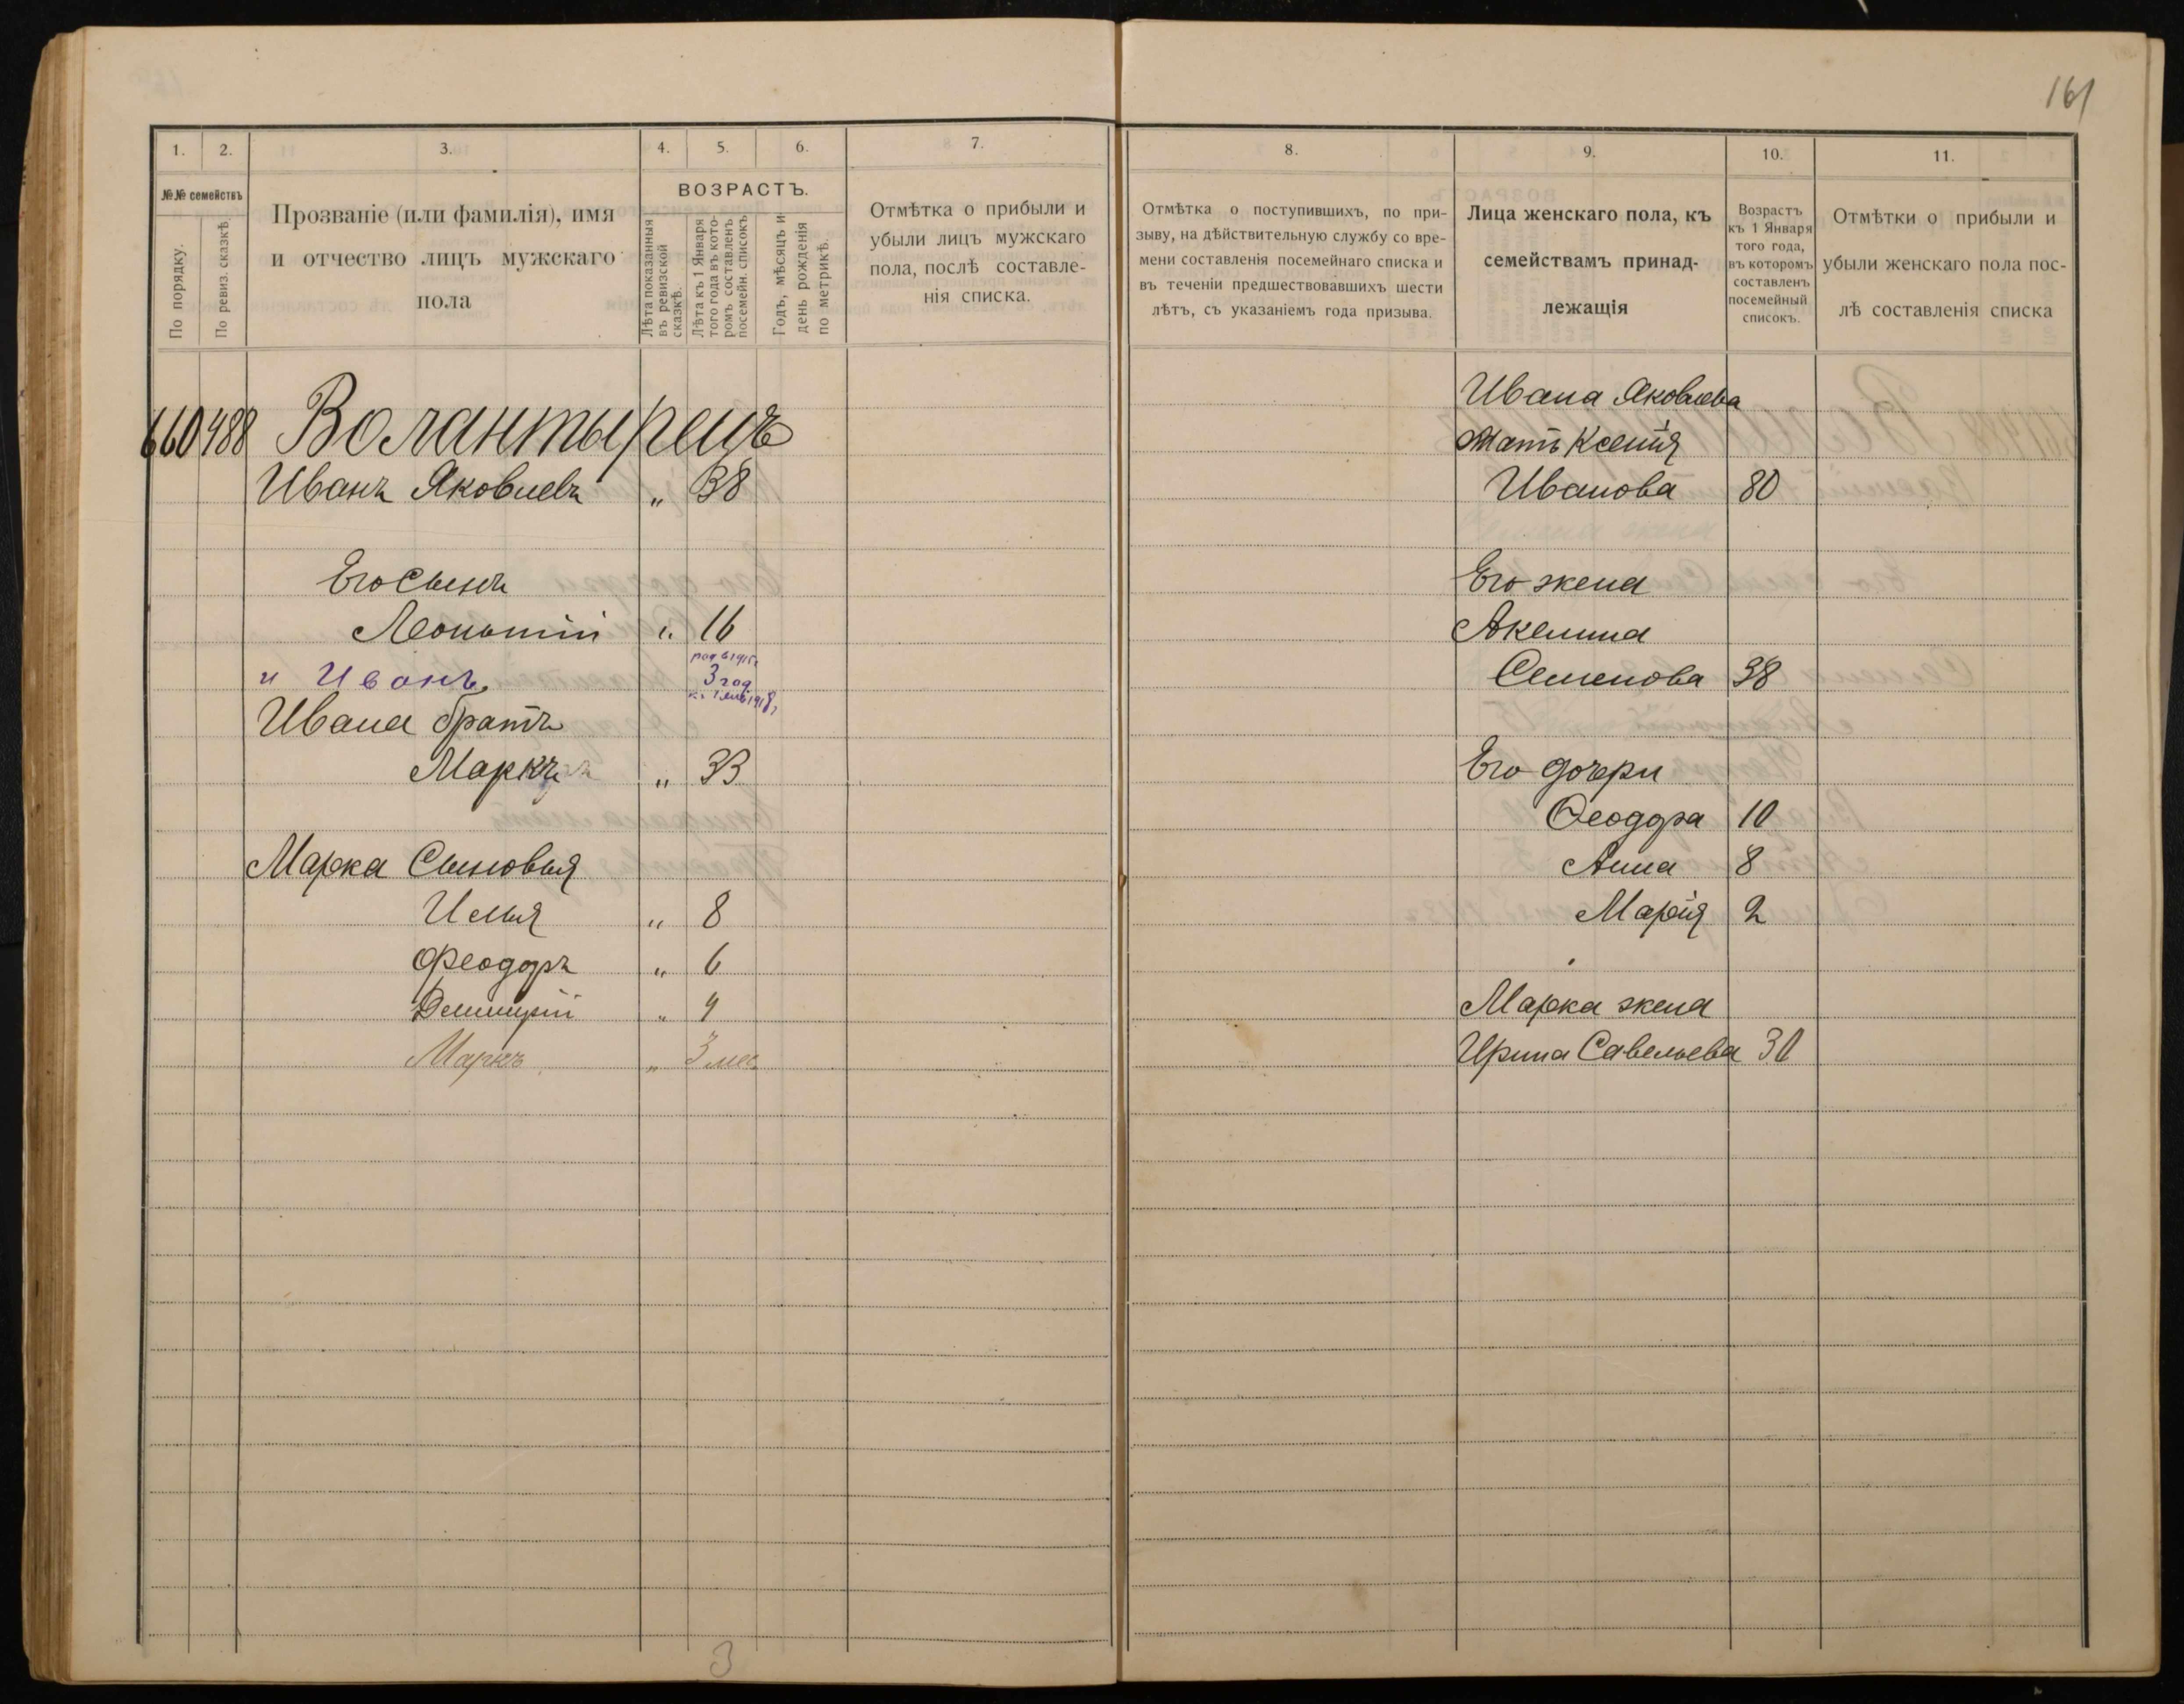 161
1. 2. 3. 4. 5. 6. 7.
№№ семействъ
По порядку.
По ревиз. сказкѣ.
Прозваніе (или фамилія), имя
и отчество лицъ мужскаго
пола
ВОЗРАСТЪ.
Лѣта показанныя
въ ревизской
сказкѣ.
Лѣта къ 1 Января
того года въ кото-
ромъ составленъ
посемейн. списокъ
Годъ, мѣсяцъ и
день рожденія
по метрикѣ.
Отмѣтка о прибыли и
убыли лицъ мужскаго
пола, послѣ составле-
нія списка.
660 488 Волантырецъ
Иванъ Яковлевъ „ 38
Его Сынъ
Леонтій „ 16
род в 1915г.
и Иванъ 3 год
к. 1 янв 1918г.
Ивана братъ
Маркъ „ 33
Марка Сыновья
Илья „ 8
Феодоръ „ 6
Димитрій „ 4
Маркъ „ 3 мес
3
8. 9. 10. 11.
Отмѣтка о поступившихъ, по при-
зыву, на дѣйствительную службу со вре-
мени составленія посемейнаго списка и
въ теченіи предшествовавшихъ шести
лѣтъ, съ указаніемъ года призыва.
Лица женскаго пола, къ
семействамъ принад-
лежащія
Возрастъ
къ 1 Января
того года,
въ которомъ
составленъ
посемейный
списокъ.
Отмѣтки о прибыли и
убыли женскаго пола пос-
лѣ составленія списка
Ивана Яковлева
Мать Ксенія
Иванова 80
Его жена
Акелина
Семенова 38
Его дочери
Феодора 10
Анна 8
Марія 2
Марка жена
Ирина Савельева 30